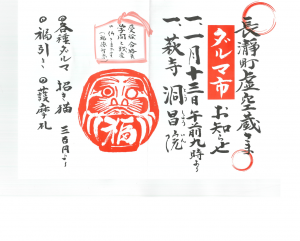 長瀞町虚空蔵さま
ダルマ市
お知らせ
一、一月十三日午前九時より
一、萩寺 洞昌院
福
◎各種ダルマ 招き猫 三百円より
◎福引き ◎護摩札